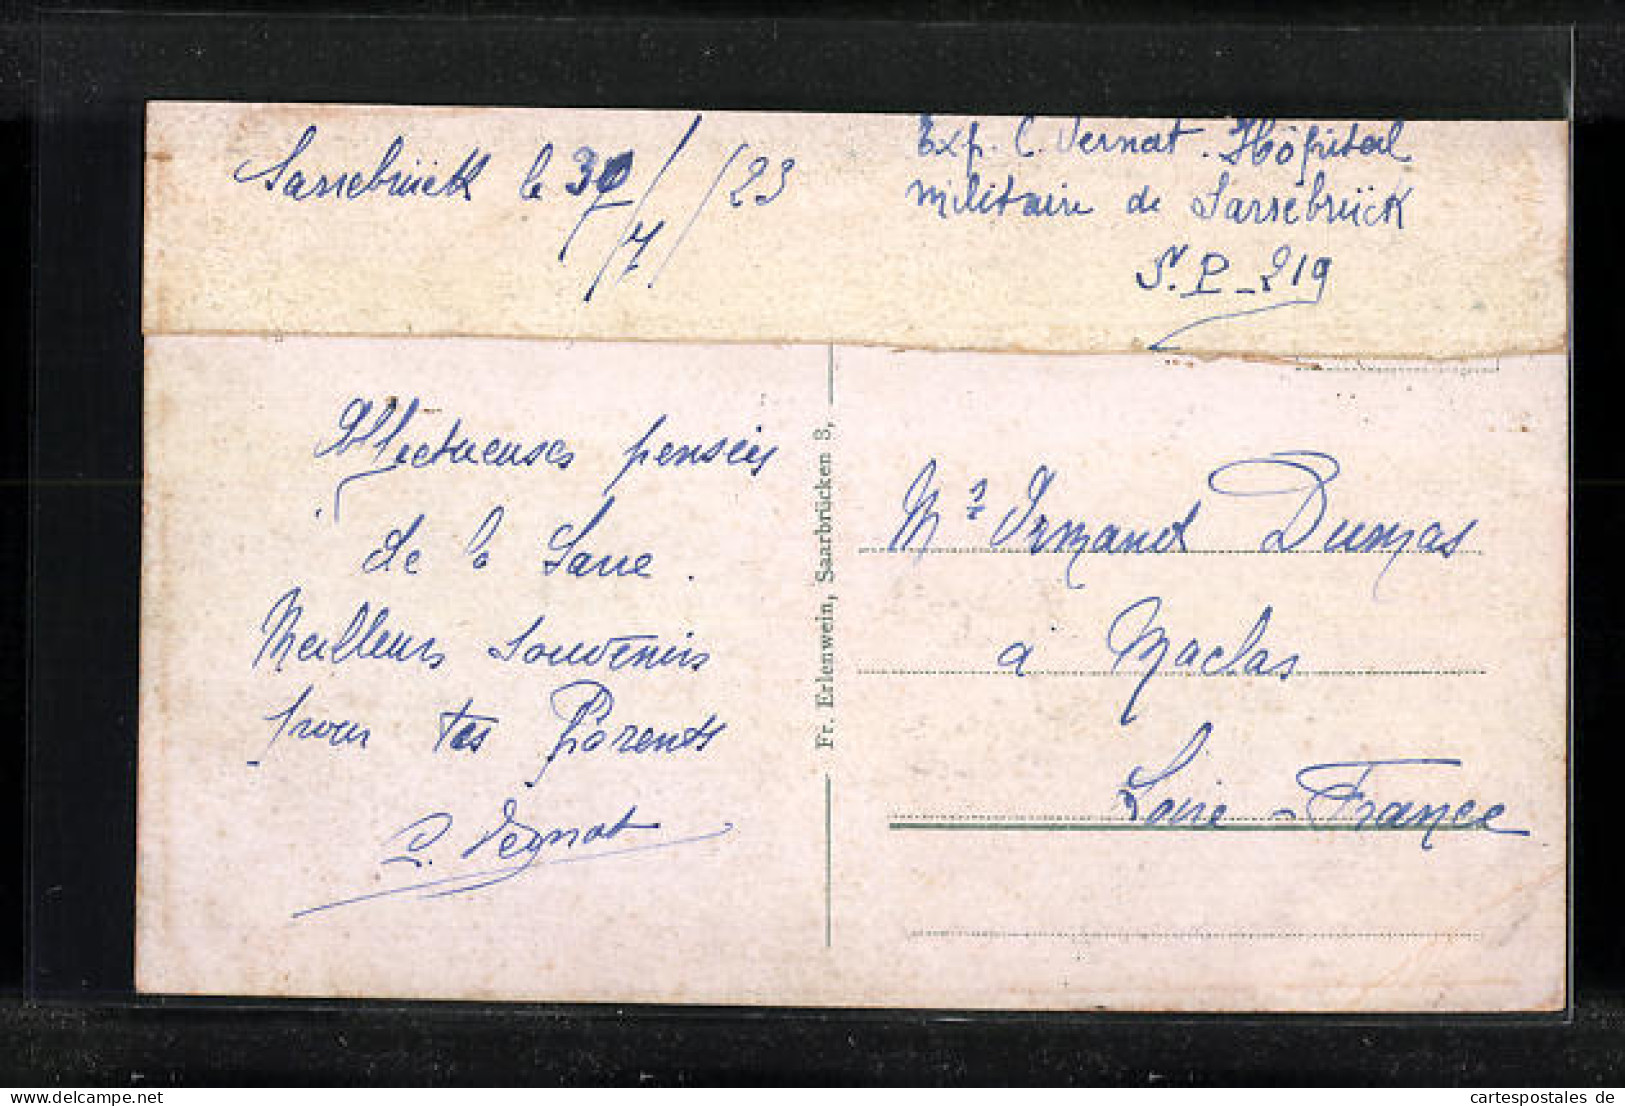 Sarrebrück le 30/7/23
Exp. C. Vernat. Hôpital
militaire de Sarrebrück
S.P_219
Affectueuses pensées
de la Sarre.
Meilleurs souvenirs
pour tes Parents
C. Vernat
Fr. Erlenwein, Saarbrücken 3,
Mr Armand Dumas
à Maclas
Loire - France
cartespostales de